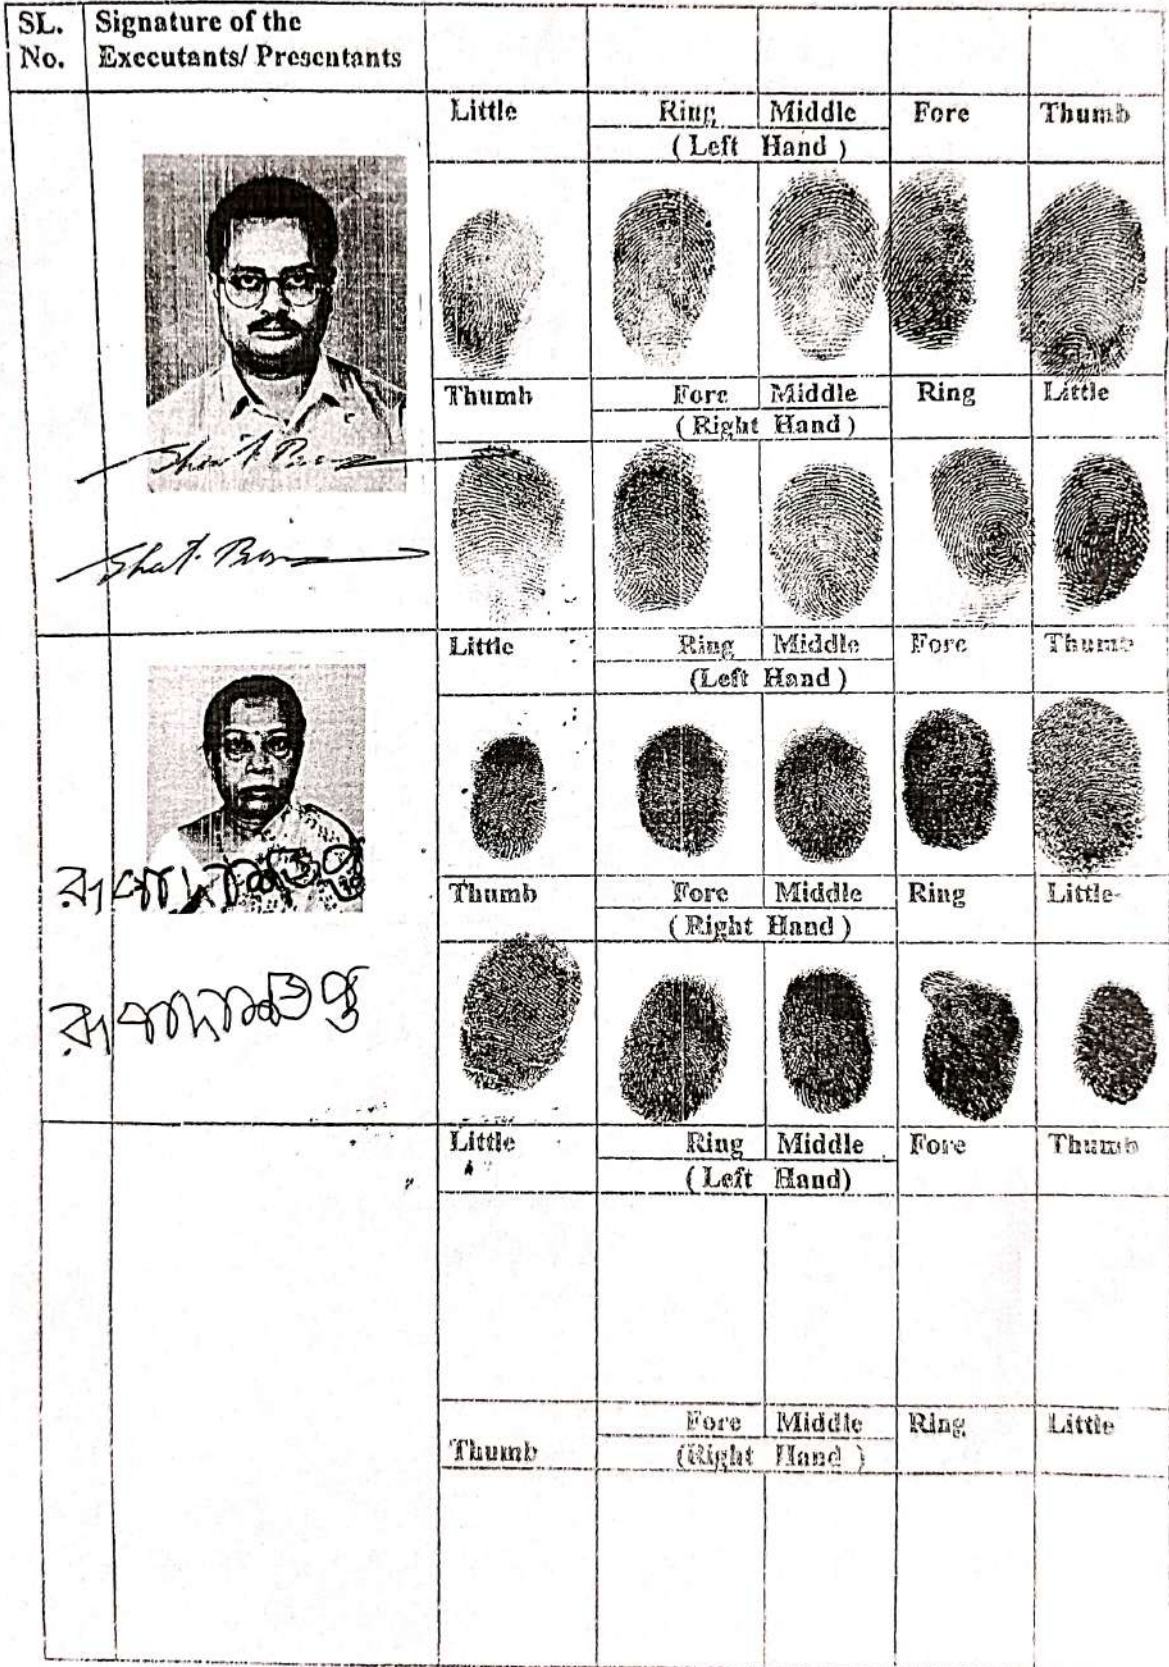 SL. No. Signature of the Executants/ Presentants
Little Ring Middle Fore Thumb
(Left Hand)
Thumb Fore Middle Ring Little
(Right Hand)
Little Ring Middle Fore Thumb
(Left Hand)
Thumb Fore Middle Ring Little
(Right Hand)
Little Ring Middle Fore Thumb
(Left Hand)
Thumb Fore Middle Ring Little
(Right Hand)